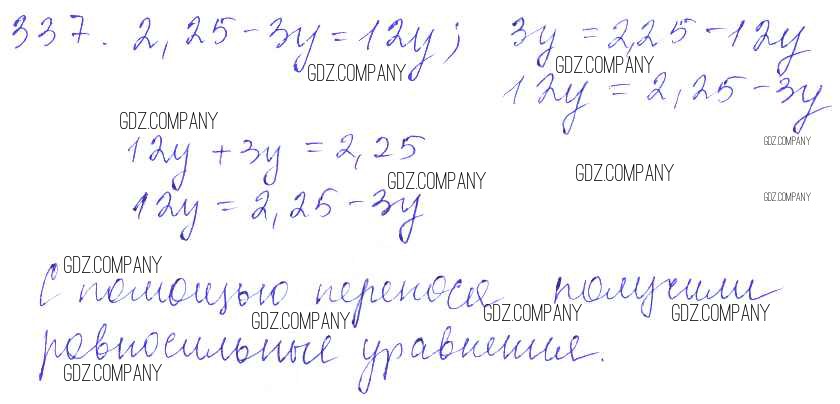 337. 2,25-3y=12y; 3y=2,25-12y
GDZ.COMPANY GDZ.COMPANY
12y=2,25-3y
GDZ.COMPANY GDZ.COMPANY
12y+3y=2,25
GDZ.COMPANY GDZ.COMPANY
12y=2,25-3y GDZ.COMPANY
GDZ.COMPANY
С помощью переноса получили
GDZ.COMPANY GDZ.COMPANY GDZ.COMPANY
равносильные уравнения.
GDZ.COMPANY